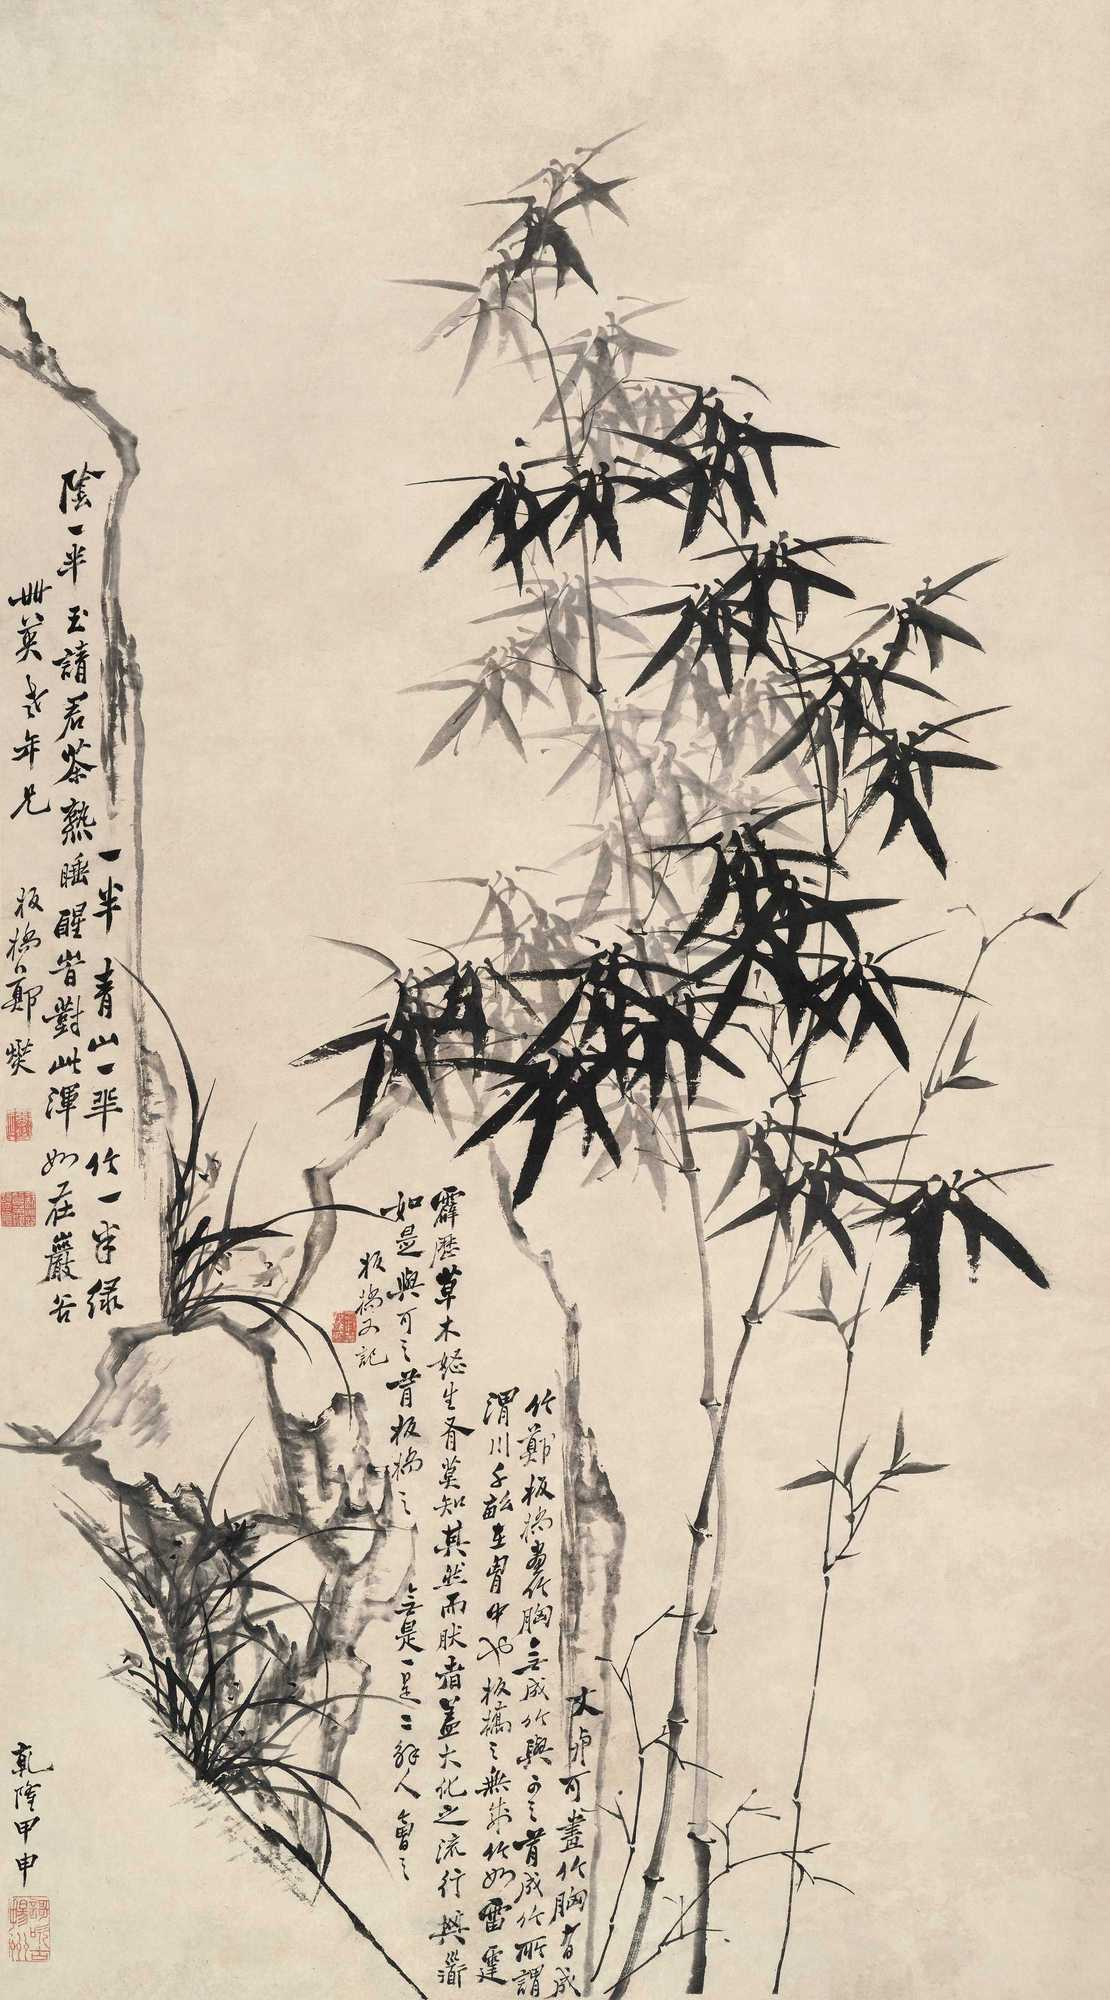 文與可畫竹胸有成
竹鄭板橋畫竹胸無成竹與可之有成竹所謂
渭川千畝在胷中也板橋之無成竹如雷霆
霹歷草木怒生有莫知其然而然者蓋大化之流行其道
如是與可之有板橋之無是一是二解人會之
板橋又記
一半青山一半竹一半綠
陰一半玉請君茶熟睡醒時對此渾如在巖谷
世英老年兄 板橋鄭燮
乾隆甲申
歌吹古揚州